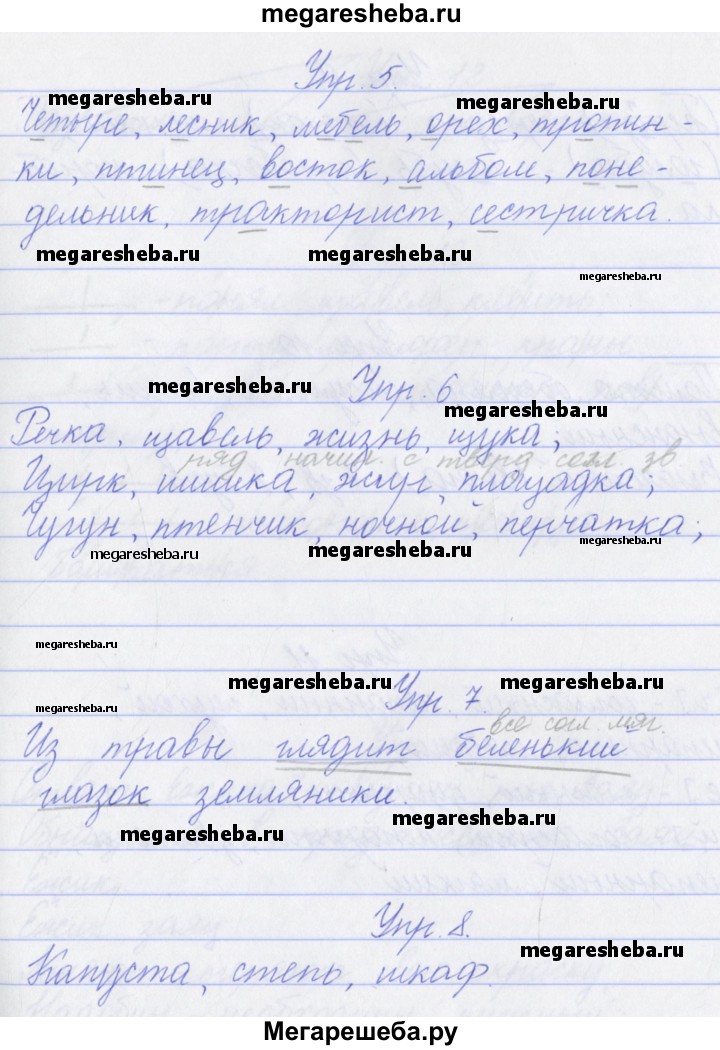 megaresheba.ru
Упр. 5.
megaresheba.ru megaresheba.ru
Четыре, лесник, мебель, орех, тропин-
ки, птинец, восток, альбом, поне-
дельник, тракторист, сестричка.
megaresheba.ru megaresheba.ru
megaresheba.ru
megaresheba.ru Упр. 6
megaresheba.ru
Речка, щавель, жизнь, щука;
ряд начин. с тверд согл. зв
Цирк, шишка, жмур, площадка;
Чугун, птенчик, ночной, перчатка;
megaresheba.ru megaresheba.ru megaresheba.ru
megaresheba.ru
megaresheba.ru megaresheba.ru
megaresheba.ru Упр. 7.
все согл. мяг.
Из травы глядит беленький
глазок земляники.
megaresheba.ru megaresheba.ru
Упр. 8.
megaresheba.ru
Капуста, степь, шкаф.
Мегарешеба.ру